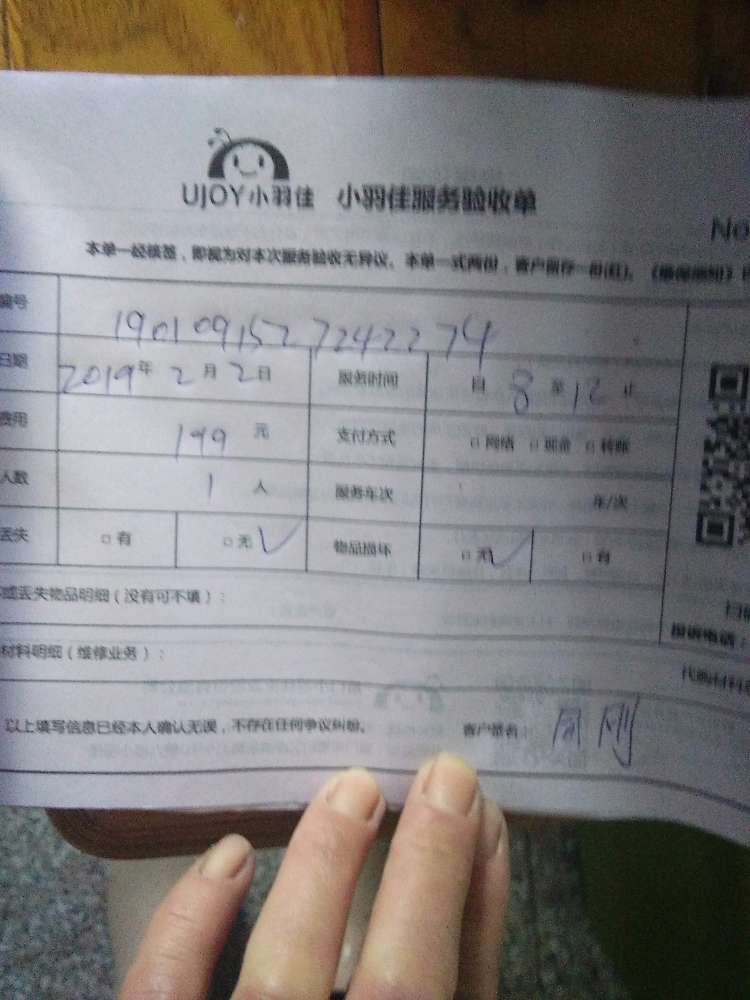 UJOY小羽佳 小羽佳服务验收单
No
本单一经核签，即视为对本次服务验收无异议。本单一式两份，客户留存一份(红)。
编号 190109152 7242274
日期 2019年 2月 2日 服务时间 自 8 至 12 止
费用 199 元 支付方式 □网络 □现金 □转账
人数 1 人 服务车次 车/次
丢失 □有 □无√ 物品损坏 □无√ □有
或丢失物品明细（没有可不填）：
投诉电话：
材料明细（维修业务）：
代购材料
以上填写信息已经本人确认无误，不存在任何争议纠纷。 客户签名： 周刚